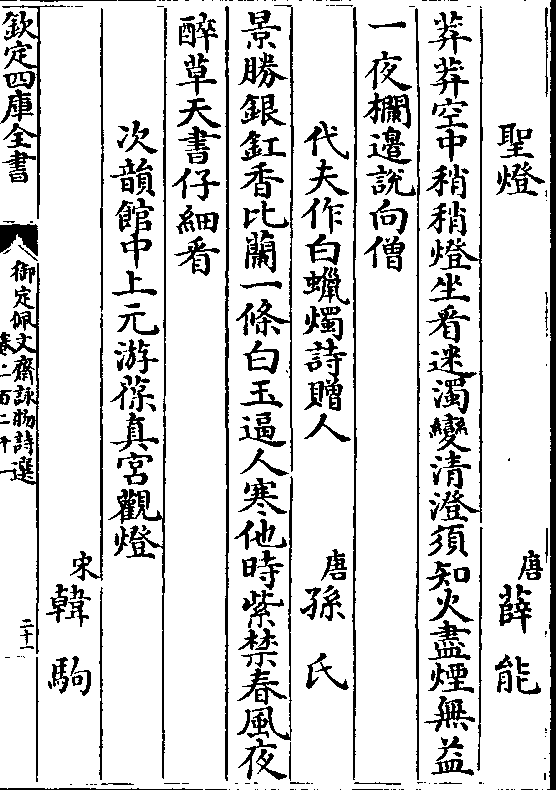 聖燈
唐 薛能
莽莽空中稍稍燈坐看迷濁變清澄須知火盡煙無益
一夜欄邊說向僧
代夫作白蠟燭詩贈人
唐 孫氏
景勝銀釭香比蘭一條白玉逼人寒他時紫禁春風夜
醉草天書仔細看
次韻館中上元游葆真宮觀燈
宋 韓駒
欽定四庫全書
御定佩文齋詠物詩選
卷二百二十一
二十一